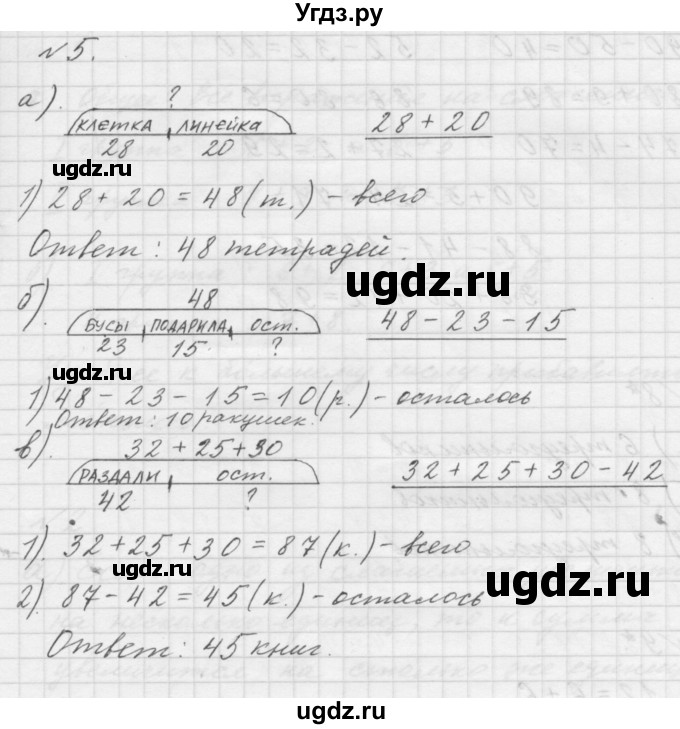 Угдз.ру
№5.
а).
?
КЛЕТКА ЛИНЕЙКА
28 20
28 + 20
ugdz.ru
1) 28 + 20 = 48 (т.) - всего
Ответ: 48 тетрадей.
ugdz.ru
б).
48
БУСЫ ПОДАРИЛА ост.
23 15 ?
48 - 23 - 15
ugdz.ru
1) 48 - 23 - 15 = 10 (р.) - осталось
Ответ: 10 ракушек.
в).
32 + 25 + 30
РАЗДАЛИ ост.
42 ?
32 + 25 + 30 - 42
ugdz.ru
1). 32 + 25 + 30 = 87 (к.) - всего
ugdz.ru
2). 87 - 42 = 45 (к.) - осталось
ugdz.ru
Ответ: 45 книг.
ugdz.ru
ugdz.ru